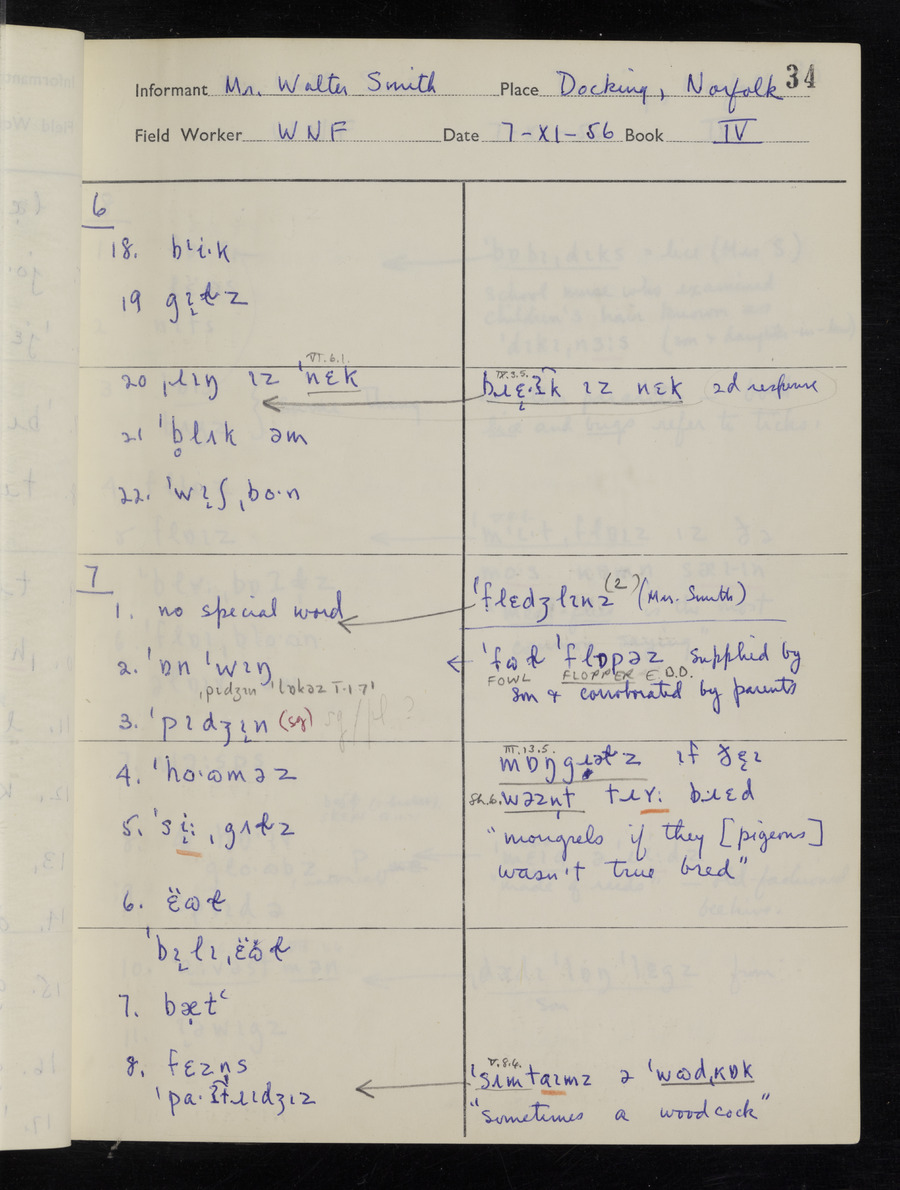 34
Informant Mr. Walter Smith Place Docking, Norfolk
Field Worker WNF Date 7-XI-56 Book IV
6
18. bɹi·k
19 gɪɫz
VI.6.1.
20 ˌlɪŋ ɪz ˈnɛk
IX.3.5.
ɪz nɛk 2d response
21 ˈbl̥ɪk əm
22. ˈwɪʃˌbo·n
7
1. no special word
ˈflɛdʒlɪnz (2) (Mrs. Smith)
2. ˈɒn ˈwɪŋ
ˈfɷɫ ˈflɒpəz supplied by
FOWL FLOPPER E.D.D.
son & corroborated by parents
ˌpɪdʒɪn ˈlɒkəz I.1.7
3. ˈpɪdʒɪn (sg) sg/pl?
4. ˈho·ɷməz
III.13.5.
mɒŋgɹəɫz ɪf ðɛɪ
Sh.6. wəznt bɹɛd
5. ˈsɪi: ˌgʌɫz
"mongrels if they [pigeons]
wasn't true bred"
6. ɛ̈ɷɫ
ˈbɪlɪˌɛ̈ɷ̆ɫ
7. bætʿ
8. fɛzns
V.8.4.
ˈsʌmtaɪmz ə ˈwɷdˌkɒk
"sometimes a woodcock"